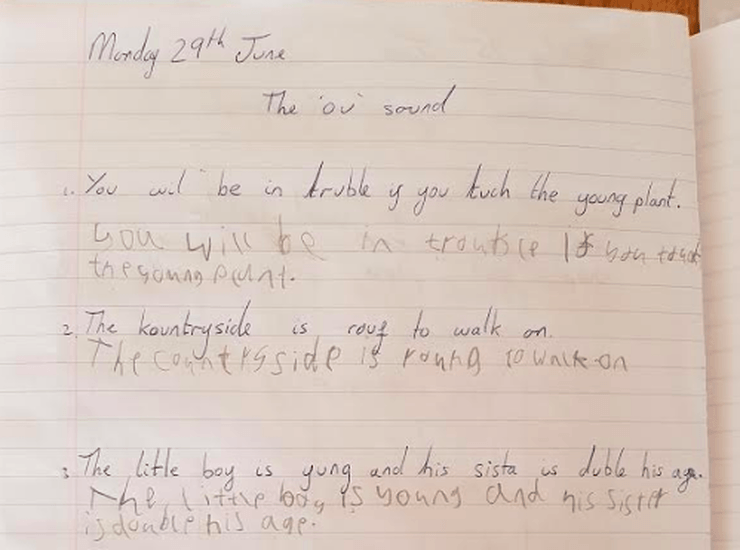 Monday 29th June
The 'ou' sound
1. You wil be in truble if you tuch the young plant.
you will be in trouble If you touch
the young plant.
2. The kountryside is rouf to walk on.
The countryside is to walk on
3 The little boy is yung and his sista is duble his age.
The little boy is young and his sister
is double his age.